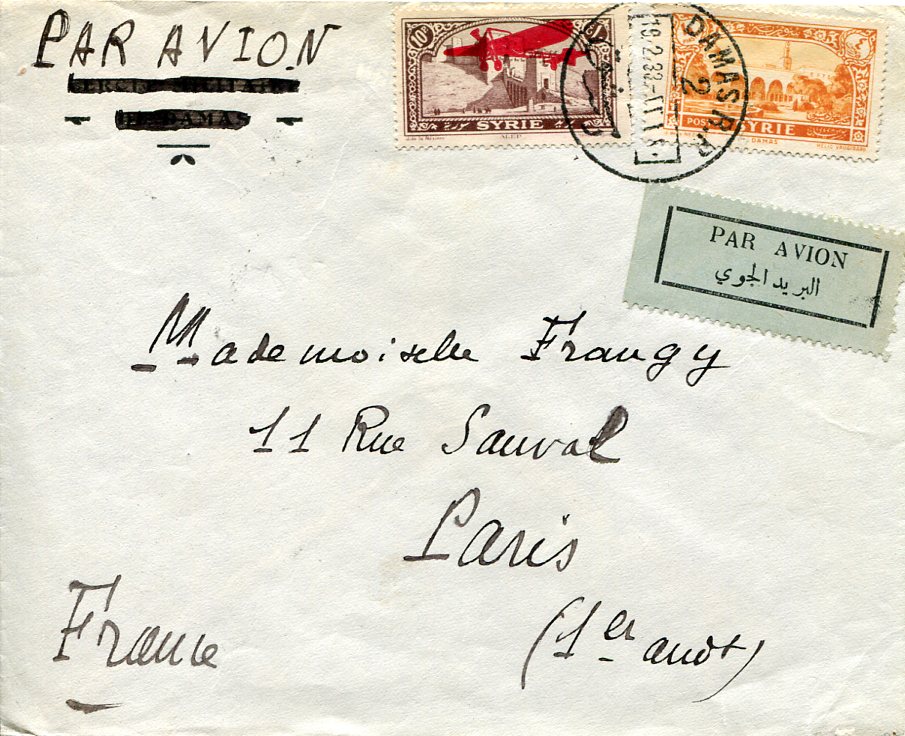 PAR AVION
CERCLE MILITAIRE
DE DAMAS
10P
SYRIE
ALEP
DAMAS R.P.
2
18.2.32
POSTES
SYRIE
DAMAS
HELIO VAUGIRARD
PAR AVION
البريد الجوي
Mademoiselle Frangy
11 Rue Sauval
Paris
(1er arrdt)
France